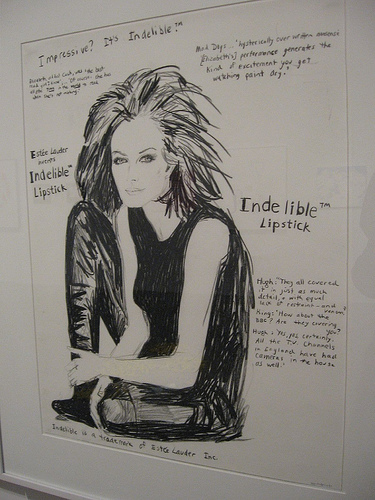 Impressive? It's Indelible.™
"hysterically over written nonsense
[Elizabeth's] performance generates the
kind of excitement you get
watching paint dry."
Estée Lauder
Indelible™
Lipstick
Indelible™
Lipstick
Hugh: They all covered
it in just as much
detail, with equal
lack of restraint - and
venom.
King: How about the
BBC? Are they covering
you?
Hugh: Yes, yes, certainly.
All the T.V. Channels
in England have had
cameras in the house
as well."
Indelible is a trademark of Estée Lauder Inc.